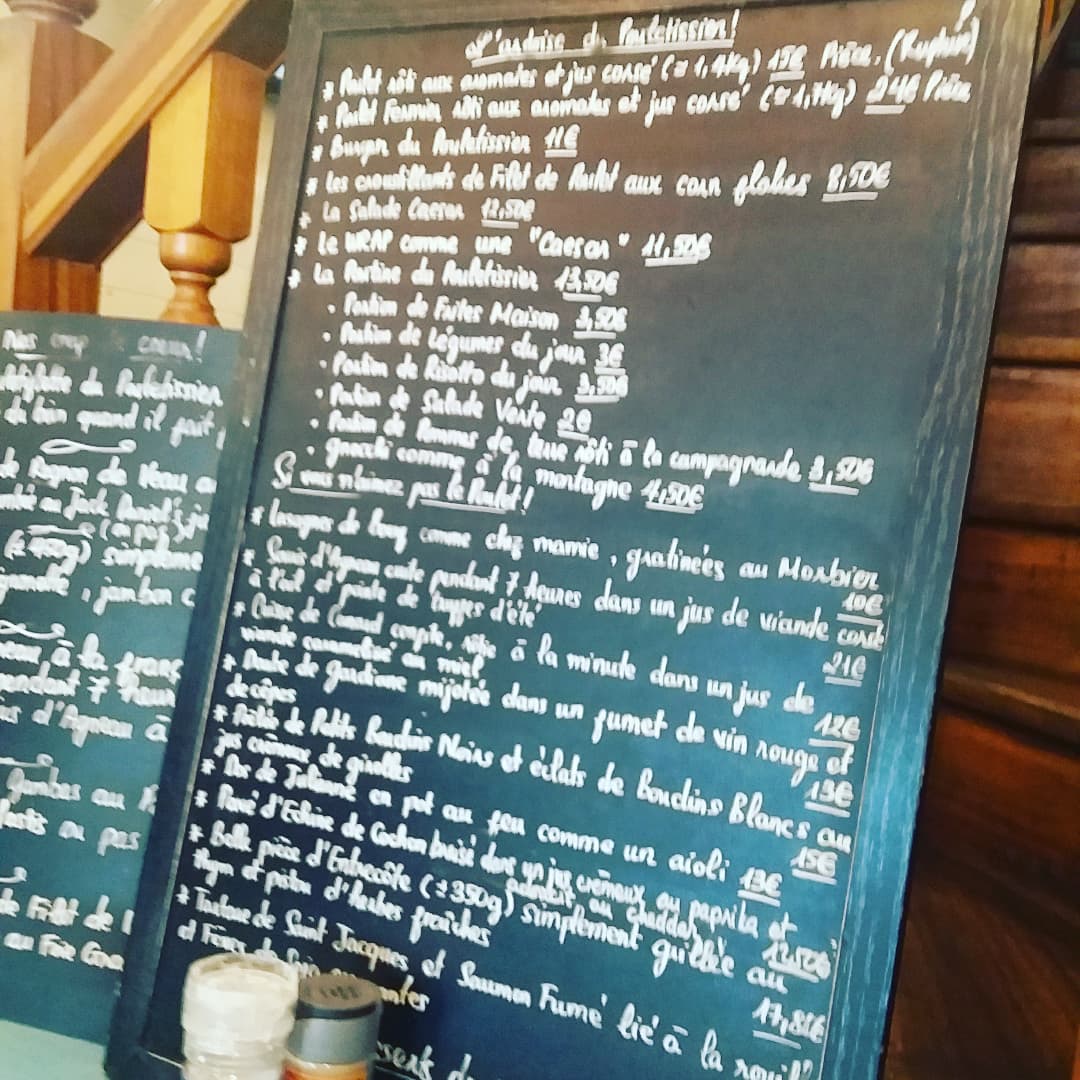 L'ardoise du Pouletissier!
* Poulet rôti aux aromates et jus corsé (≃ 1,4Kg) 17€ Pièce. (Rupture)
* Poulet Fermier rôti aux aromates et jus corsé (≃ 1,7Kg) 24€ Pièce
* Burger du Pouletissier 11€
* Les croustillants de Filet de Poulet aux corn flakes 8,50€
* La Salade Caesar 12,50€
* Le WRAP comme une "Caesar" 11,50€
* La Tartine du Pouletissier 13,50€
• Portion de Frites Maison 3,50€
• Portion de Légumes du jour 3€
• Portion de Risotto du jour 3,50€
• Portion de Salade Verte 2€
• Portion de Pommes de terre rôti à la campagnarde 3,50€
• gnocchi comme à la montagne 4,50€
Si vous n'aimez pas le Poulet!
* Lasagnes de comme chez mamie, gratinées au Morbier
10€
* Souris d'Agneau cuite pendant 7 heures dans un jus de viande corsé
à l'ail et pointe de truffes d'été 21€
* Cuisse de Canard confite, rôtie à la minute dans un jus de
viande caramélisé au miel 12€
* de mijotée dans un fumet de vin rouge et
de cèpes 13€
* Poêlée de Petits Boudins Noirs et éclats de Boudins Blancs au
jus crémeux de girolles 15€
* Dos de en pot au feu comme un aïoli 13€
* Pavé d'Echine de Cochon braisé dans un jus crémeux au paprika et
au cheddar
* Belle pièce d'Entrecôte (± 350g) simplement grillée au
Thym et pistou d'herbes fraîches
* de Saint Jacques et Saumon Fumé lié à la
et
Nos coup de coeur!
du Pouletissier
du bien quand il fait
de Rognon de Veau
au Jack Daniel's, ju
(au pois)
(± 450g) simpleme
, jambon c
à la franç
pendant 7 heur
d'Agneau à
Jambes au
ou pas
de Filet de
au Foie Gra